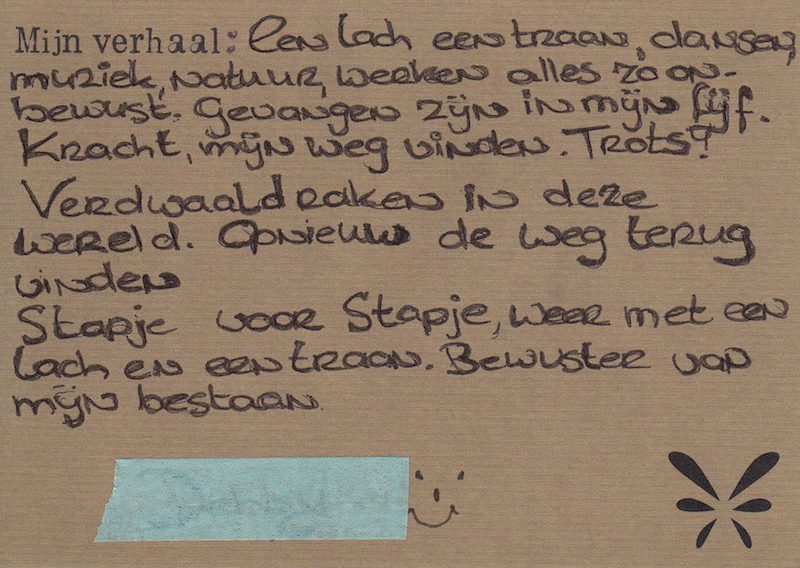 Mijn verhaal: Een lach een traan, dansen,
muziek, natuur, werken alles zo on-
bewust. Gevangen zijn in mijn lijf.
Kracht, mijn weg vinden. Trots?
Verdwaald raken in deze
wereld. Opnieuw de weg terug
vinden
Stapje voor Stapje, weer met een
lach en een traan. Bewuster van
mijn bestaan